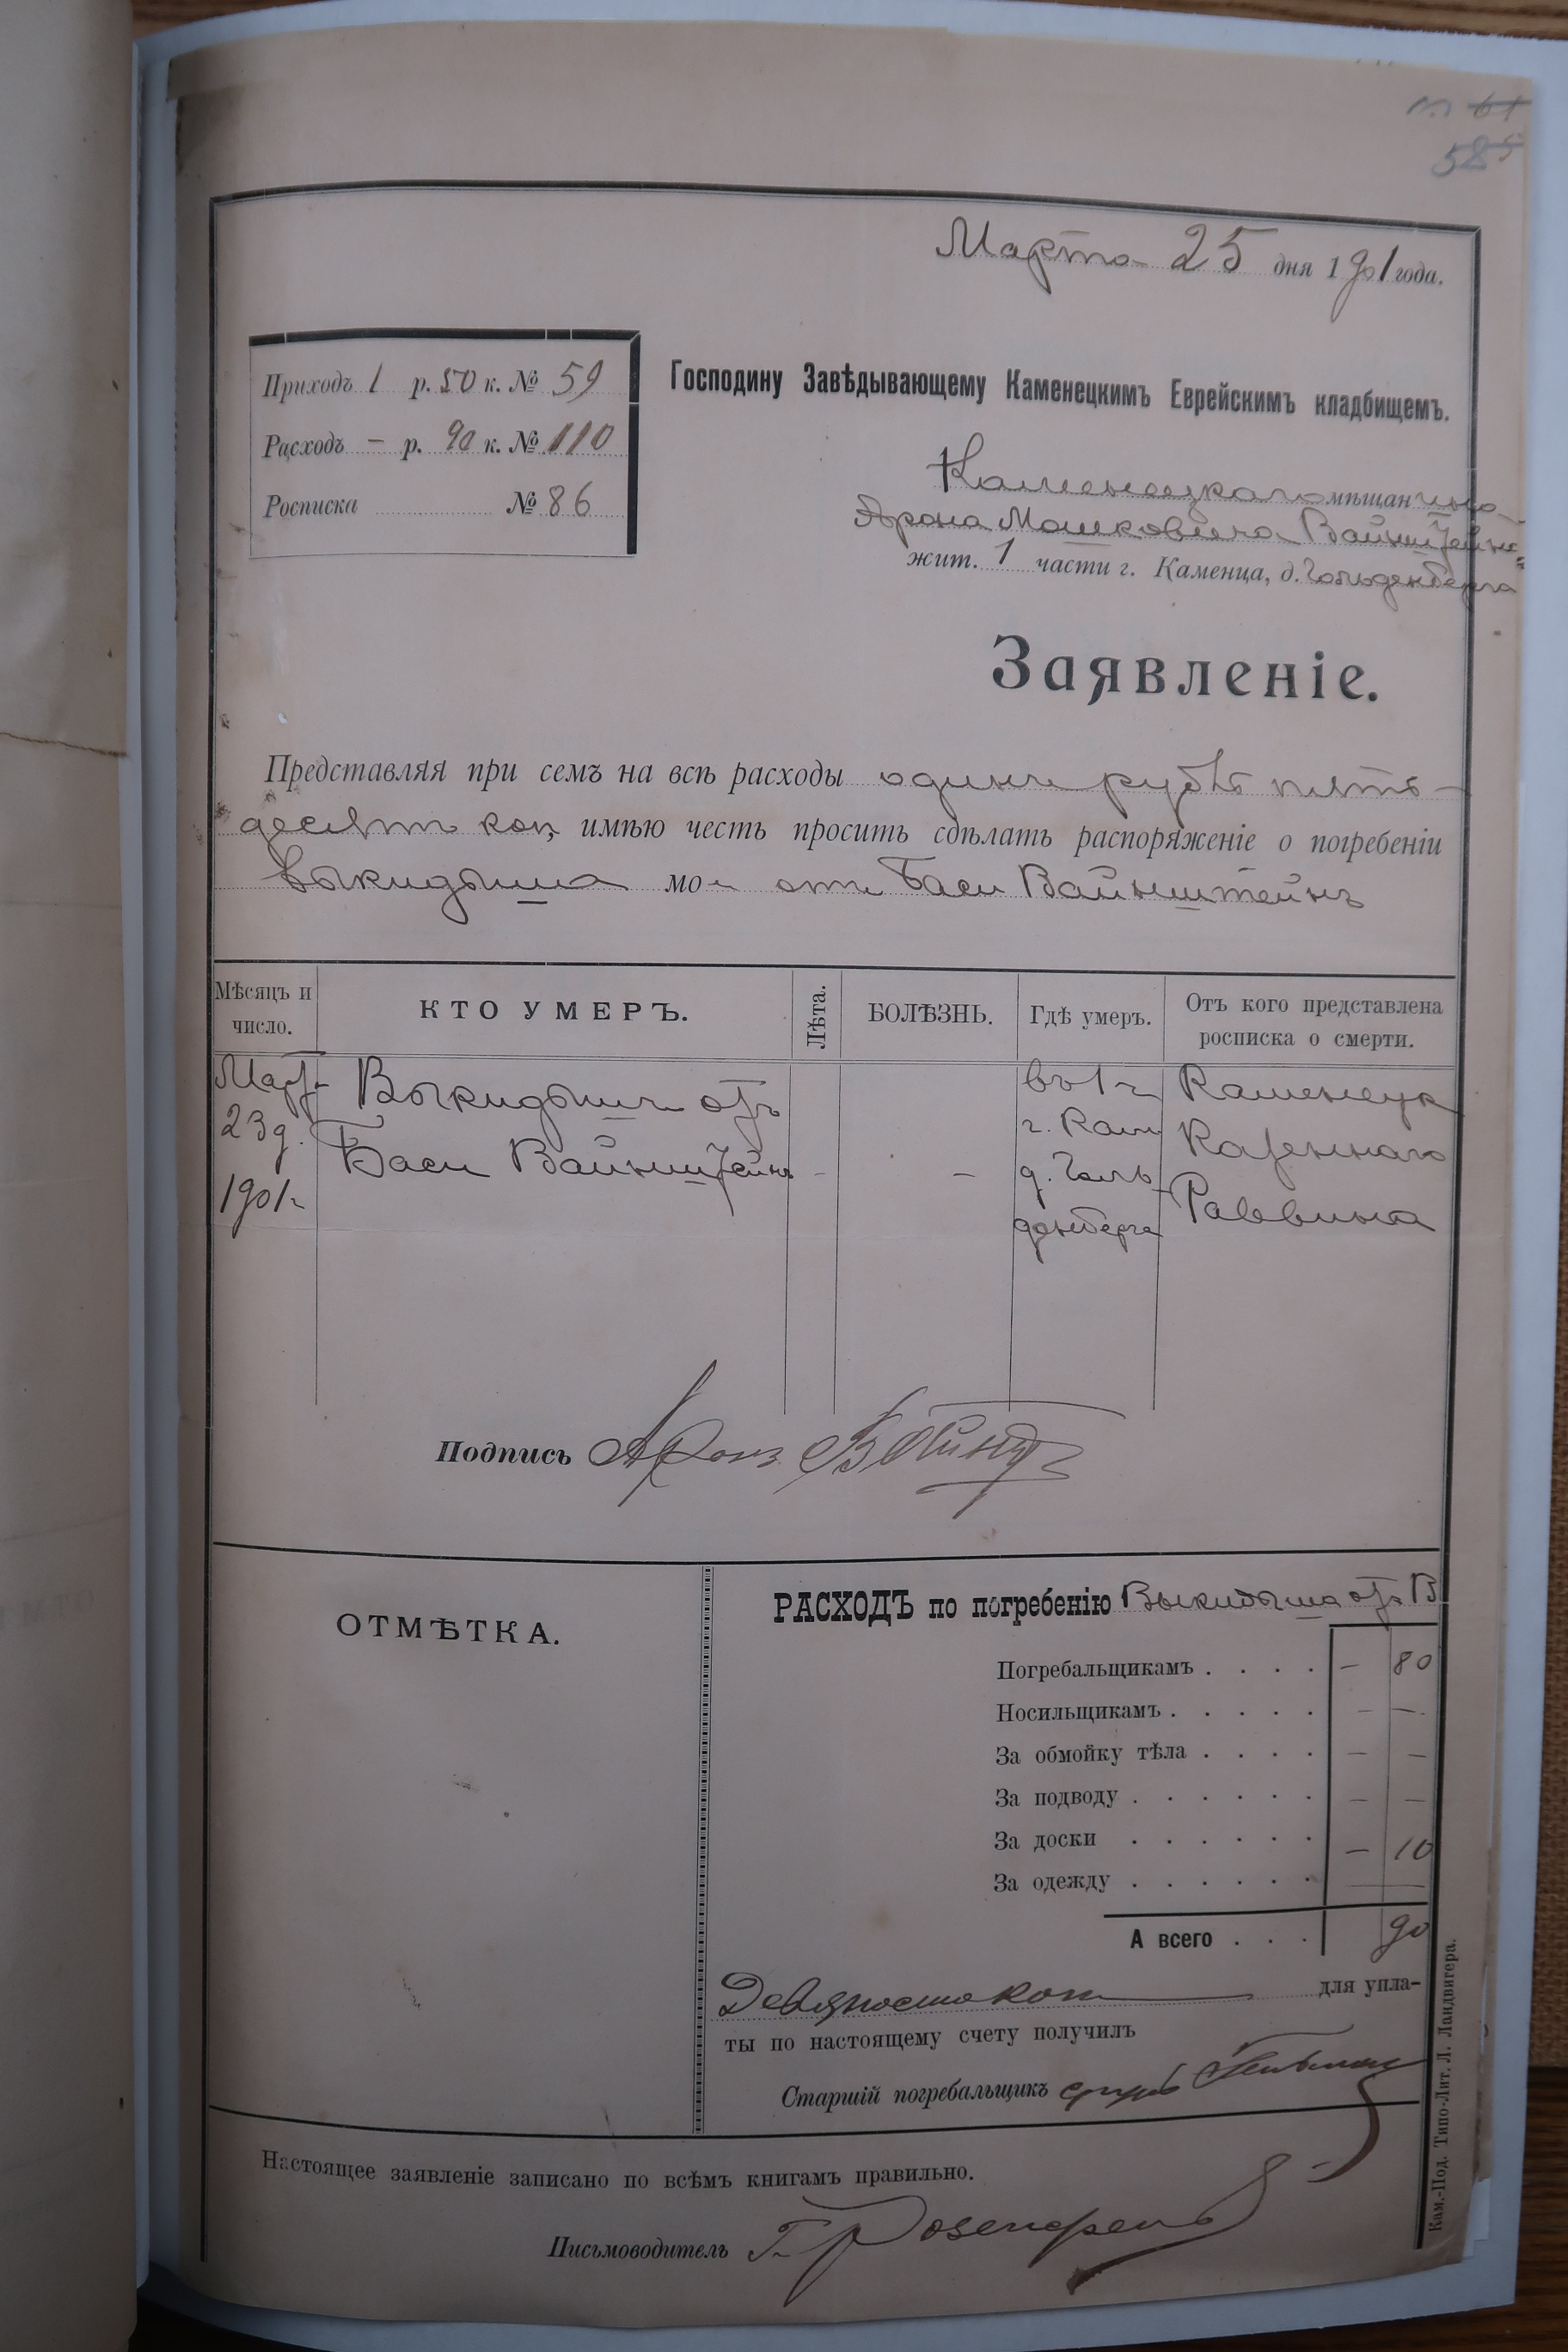 61
58
Марта 25 дня 1901 года.
Приходъ 1 р. 50 к. № 59
Расходъ — р. 90 к. № 110
Росписка № 86
Господину Завѣдывающему Каменецкимъ Еврейскимъ кладбищемъ.
Каменецкаго мѣщанина
Арона Мошковича Вайнштейна
жит. 1 части г. Каменца, д. Гольденберга
Заявленіе.
Представляя при семъ на всѣ расходы одинъ рубль пять-
десятъ коп. имѣю честь просить сдѣлать распоряженіе о погребеніи
выкидыша мо отъ Баси Вайнштейнъ
Мѣсяцъ и число.
КТО УМЕРЪ.
Лѣта.
БОЛѢЗНЬ.
Гдѣ умеръ.
Отъ кого представлена росписка о смерти.
Март. Выкидышъ отъ въ 1 ч. Каменецк
23 д. Баси Вайнштейнъ - - г. Кам Казеннаго
1901 г. д. Голь- Раввина
денберга
Подпись Аронъ
ОТМѢТКА.
РАСХОДЪ по погребенію Выкидыша отъ В
Погребальщикамъ . . . . — 80
Носильщикамъ . . . . . — —
За обмойку тѣла . . . . — —
За подводу . . . . . . — —
За доски . . . . . . — 10
За одежду . . . . . . —
А всего . . . 90
Девяносто коп для упла-
ты по настоящему счету получилъ
Старшій погребальщикъ
Настоящее заявленіе записано по всѣмъ книгамъ правильно.
Письмоводитель Г. Розенфельд
Кам.-Под. Типо-Лит. Л. Ландвигера.